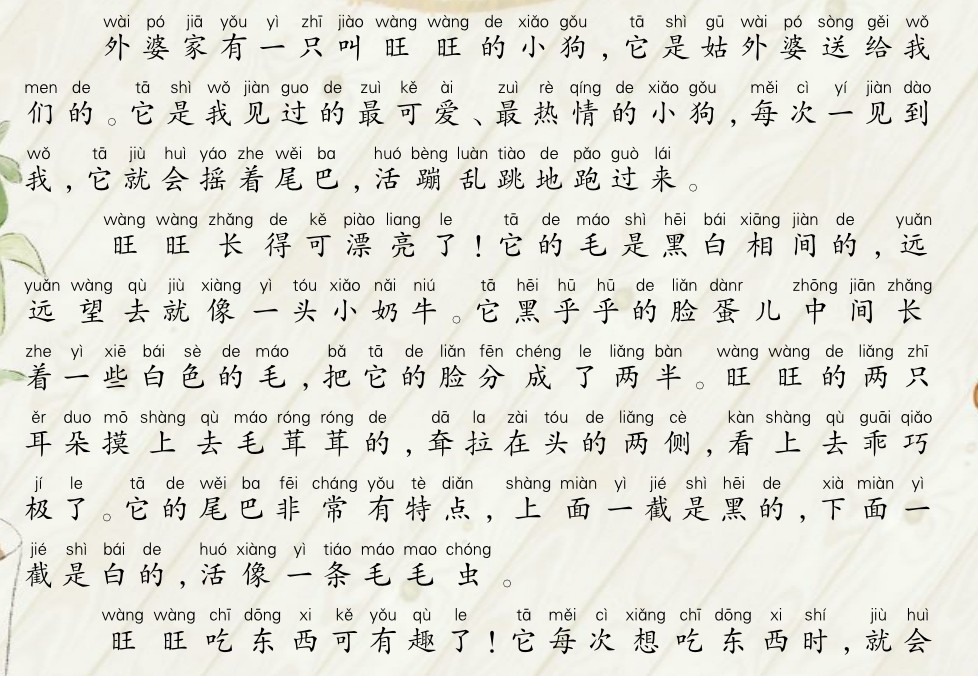 wài pó jiā yǒu yì zhī jiào wàng wàng de xiǎo gǒu tā shì gū wài pó sòng gěi wǒ
外婆家有一只叫旺旺的小狗,它是姑外婆送给我
men de tā shì wǒ jiàn guo de zuì kě ài zuì rè qíng de xiǎo gǒu měi cì yí jiàn dào
们的。它是我见过的最可爱、最热情的小狗,每次一见到
wǒ tā jiù huì yáo zhe wěi ba huó bèng luàn tiào de pǎo guò lái
我,它就会摇着尾巴,活蹦乱跳地跑过来。
wàng wàng zhǎng de kě piào liang le tā de máo shì hēi bái xiāng jiàn de yuǎn
旺旺长得可漂亮了!它的毛是黑白相间的,远
yuǎn wàng qù jiù xiàng yì tóu xiǎo nǎi niú tā hēi hū hū de liǎn dànr zhōng jiān zhǎng
远望去就像一头小奶牛。它黑乎乎的脸蛋儿中间长
zhe yì xiē bái sè de máo bǎ tā de liǎn fēn chéng le liǎng bàn wàng wàng de liǎng zhī
着一些白色的毛,把它的脸分成了两半。旺旺的两只
ěr duo mō shàng qù máo róng róng de dā la zài tóu de liǎng cè kàn shàng qù guāi qiǎo
耳朵摸上去毛茸茸的,耷拉在头的两侧,看上去乖巧
jí le tā de wěi ba fēi cháng yǒu tè diǎn shàng miàn yì jié shì hēi de xià miàn yì
极了。它的尾巴非常有特点,上面一截是黑的,下面一
jié shì bái de huó xiàng yì tiáo máo mao chóng
截是白的,活像一条毛毛虫。
wàng wàng chī dōng xi kě yǒu qù le tā měi cì xiǎng chī dōng xi shí jiù huì
旺旺吃东西可有趣了!它每次想吃东西时,就会